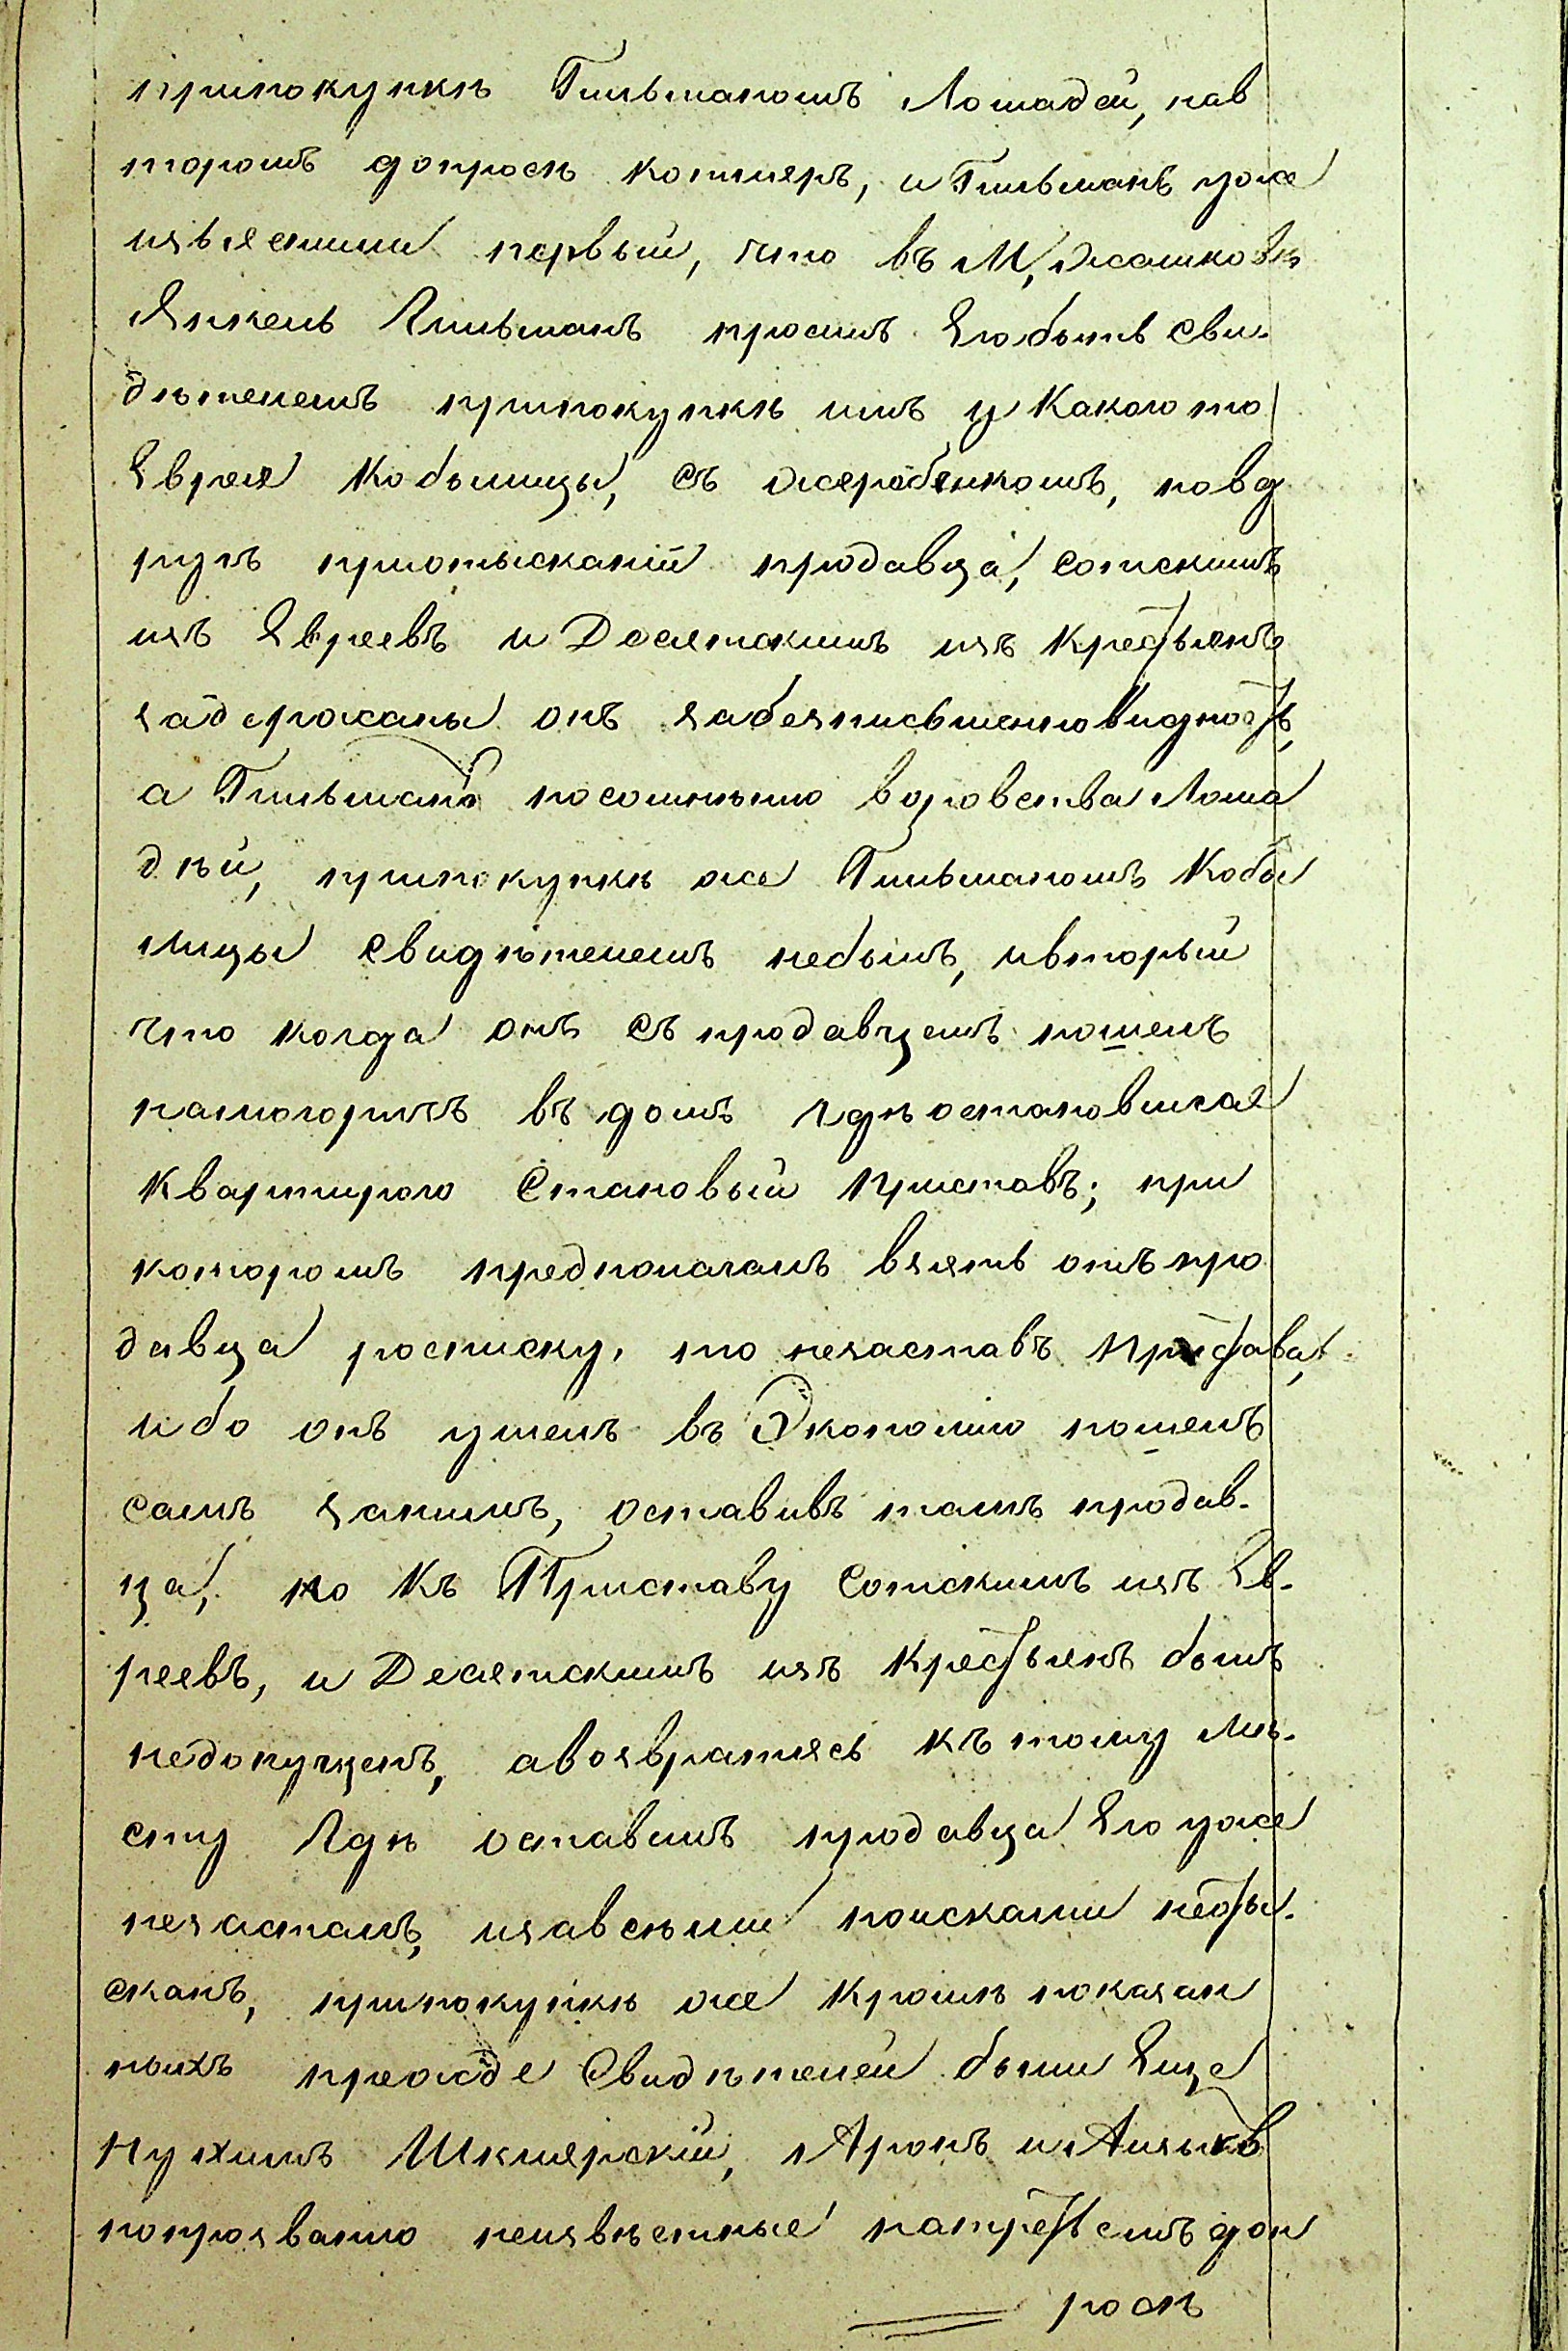 припокупкѣ Гильманомъ Лошадей, нав
торомъ допросѣ Котляръ, и Гильманъ уже
изъяснили первый, что въ М, Жашковѣ
Янкель Гильманъ просилъ Его быть сви-
дѣтелемъ припокупкѣ имъ у Какого то
Еврея Кобылицы, съ жерабенкомъ, повд
ругъ приотысканіи продавца, Сотскимъ
изъ Евреевъ и Десятскимъ изъ Крестьянъ
задержаны онъ забезписьменновидность,
а Гильманъ посомнѣнію воровства Лоша
дѣй, припокупкѣ же Гильманомъ Кобы
лицы Свидѣтелемъ небылъ, ивторый
что когда онъ съ продавцемъ пошелъ
памогоричъ въ домъ гдѣостановился
Квартирою Становый Приставъ; при
которомъ предполагалъ взять отъ про
давца росписку, то незаставъ Пристава,
ибо онъ ушелъ въ Экономію пошелъ
самъ занимъ, оставивъ тамъ продав-
ца, но Къ Приставу Сотскимъ изъ Ев-
реевъ, и Десятскимъ изъ Крестьянъ былъ
недопущенъ, авозвратясь къ тому мѣ-
сту Гдѣ оставилъ продавца Его уже
незасталъ, изавсѣми поисками неоты-
сканъ, припокупкѣ же Кромѣ показан
ныхъ прежде Свидѣтелей были Еще
Нухимъ Шклярскій, Аронъ и Аизыкъ
попрозванію неизвѣстные натретьемъ доп
росѣ